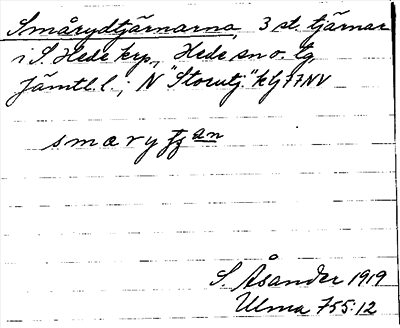 Smårydtjärnarna, 3 st. tjärnar
i S. Hede krp., Hede sn o. tg
Jämtl. l.; N "Storutj." kbl 77NV
smaryt̯an
S. Åsander 1919
Ulma 755:12